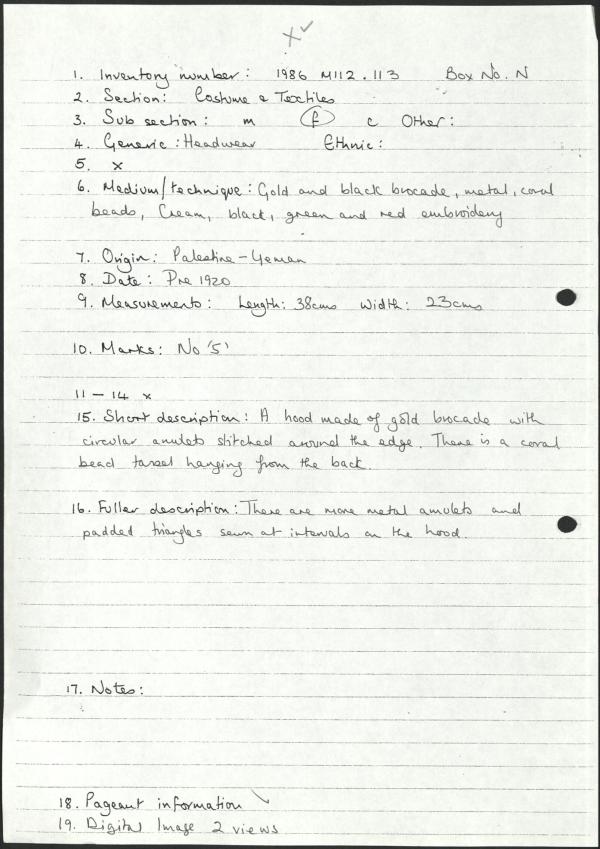 x✓
1. Inventory number: 1986 M112.113 Box No. N
2. Section: Costume & Textiles
3. Sub section: m f c Other:
4. Generic: Headwear Ethnic:
5. x
6. Medium/technique: Gold and black brocade, metal, coral
beads, Cream, black, green and red embroidery
7. Origin: Palestine - Yeman
8. Date: Pre 1920
9. Measurements: Length: 38cms Width: 23cms
10. Marks: No '5'
11 - 14 x
15. Short description: A hood made of gold brocade with
circular amulets stitched around the edge. There is a coral
bead tassel hanging from the back.
16. Fuller description: There are more metal amulets and
padded triangles sewn at intervals on the hood.
17. Notes:
18. Pageant information ✓
19. Digital Image 2 views